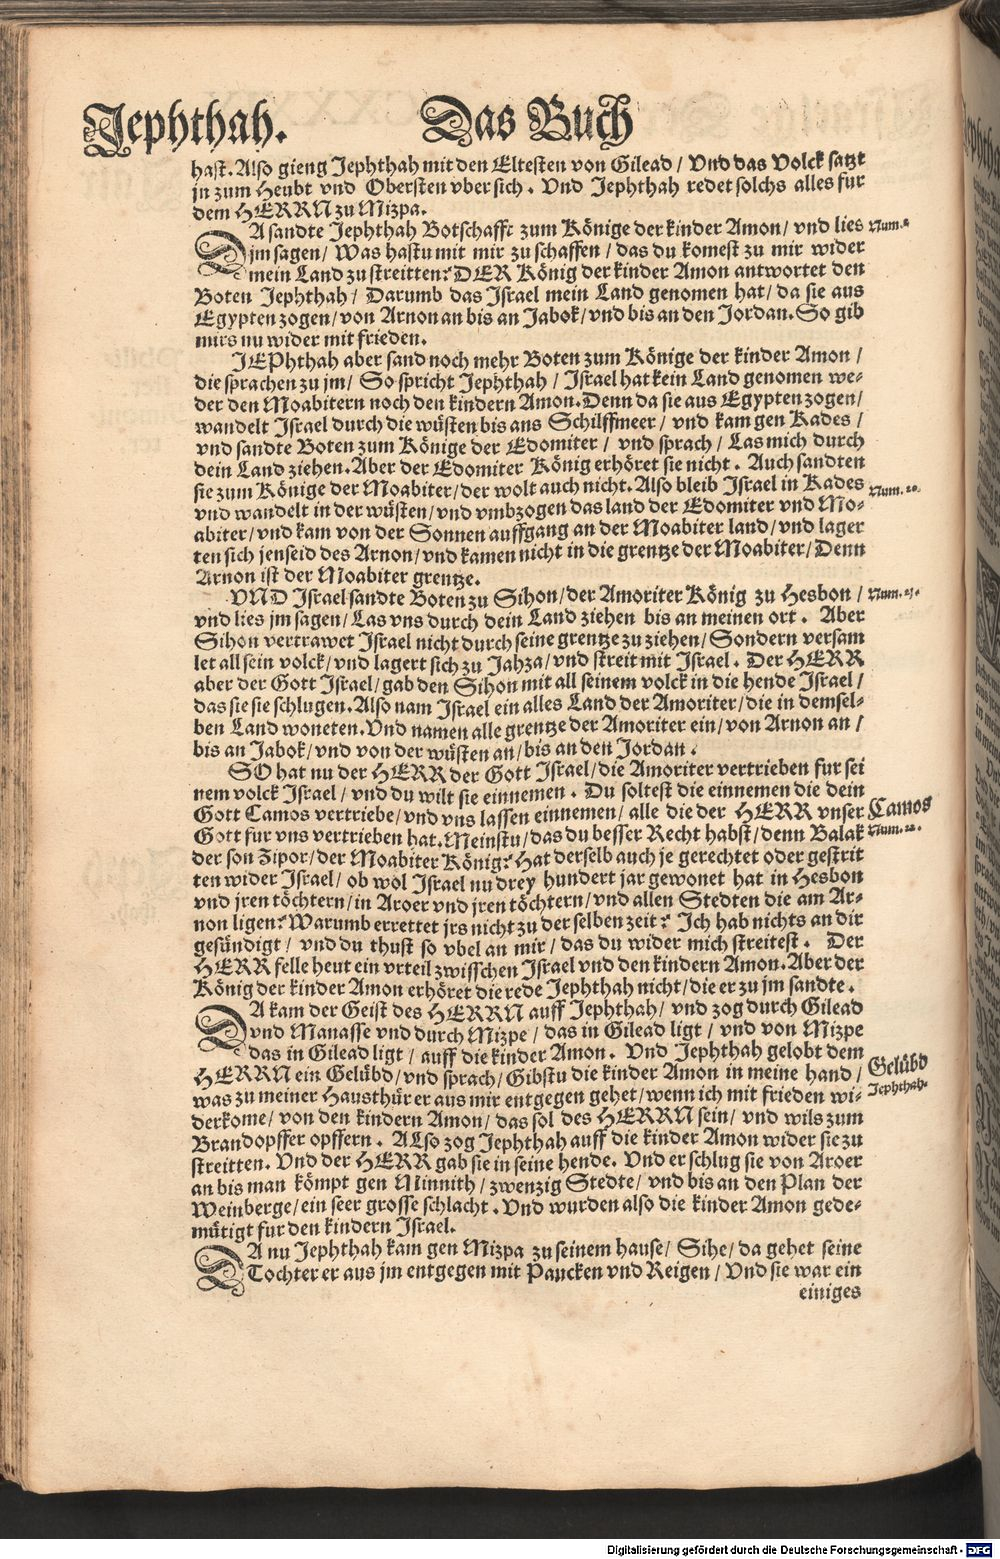 Jephthah. Das Buch
hast. Also gieng Jephthah mit den Eltesten von Gilead / Vnd das Volck satzt
jn zum Heubt vnd Obersten vber sich. Vnd Jephthah redet solchs alles fur
dem HERRN zu Mizpa.
DA sandte Jephthah Botschafft zum Könige der kinder Amon / vnd lies
jm sagen / Was hastu mit mir zu schaffen / das du komest zu mir wider
mein Land zu streitten? DER König der kinder Amon antwortet den
Boten Jephthah / Darumb das Jsrael mein Land genomen hat / da sie aus
Egypten zogen / von Arnon an bis an Jabok / vnd bis an den Jordan. So gib
mirs nu wider mit frieden.
JEPhthah aber sand noch mehr Boten zum Könige der kinder Amon /
die sprachen zu jm / So spricht Jephthah / Jsrael hat kein Land genomen we-
der den Moabitern noch den kindern Amon. Denn da sie aus Egypten zogen /
wandelt Jsrael durch die wüsten bis ans Schilffmeer / vnd kam gen Kades /
vnd sandte Boten zum Könige der Edomiter / vnd sprach / Las mich durch
dein Land ziehen. Aber der Edomiter König erhöret sie nicht. Auch sandten
sie zum Könige der Moabiter / der wolt auch nicht. Also bleib Jsrael in Kades
vnd wandelt in der wüsten / vnd vmbzogen das land der Edomiter vnd Mo-
abiter / vnd kam von der Sonnen auffgang an der Moabiter land / vnd lager
ten sich jenseid des Arnon / vnd kamen nicht in die grentze der Moabiter / Denn
Arnon ist der Moabiter grentze.
VND Jsrael sandte Boten zu Sihon / der Amoriter König zu Hesbon /
vnd lies jm sagen / Las vns durch dein Land ziehen bis an meinen ort. Aber
Sihon vertrawet Jsrael nicht durch seine grentze zu ziehen / Sondern versam
let all sein volck / vnd lagert sich zu Jahza / vnd streit mit Jsrael. Der HERR
aber der Gott Jsrael / gab den Sihon mit all seinem volck in die hende Jsrael /
das sie sie schlugen. Also nam Jsrael ein alles Land der Amoriter / die in demsel-
ben Land woneten. Vnd namen alle grentze der Amoriter ein / von Arnon an /
bis an Jabok / vnd von der wüsten an / bis an den Jordan.
SO hat nu der HERR der Gott Jsrael / die Amoriter vertrieben fur sei
nem volck Jsrael / vnd du wilt sie einnemen. Du soltest die einnemen die dein
Gott Camos vertriebe / vnd vns lassen einnemen / alle die der HERR vnser
Gott fur vns vertrieben hat. Meinstu / das du besser Recht habst / denn Balak
der son Zipor / der Moabiter König? Hat derselb auch je gerechtet oder gestrit
ten wider Jsrael / ob wol Jsrael nu drey hundert jar gewonet hat in Hesbon
vnd jren töchtern / in Aroer vnd jren töchtern / vnd allen Stedten die am Ar-
non ligen? Warumb errettet jrs nicht zu der selben zeit? Jch hab nichts an dir
gesündigt / vnd du thust so vbel an mir / das du wider mich streitest. Der
HERR felle heut ein vrteil zwisschen Jsrael vnd den kindern Amon. Aber der
König der kinder Amon erhöret die rede Jephthah nicht / die er zu jm sandte.
DA kam der Geist des HERRN auff Jephthah / vnd zog durch Gilead
vnd Manasse vnd durch Mizpe / das in Gilead ligt / vnd von Mizpe
das in Gilead ligt / auff die kinder Amon. Vnd Jephthah gelobt dem
HERRN ein Gelübd / vnd sprach / Gibstu die kinder Amon in meine hand /
was zu meiner Hausthür er aus mir entgegen gehet / wenn ich mit frieden wi-
derkome / von den kindern Amon / das sol des HERRN sein / vnd wils zum
Brandopffer opffern. ALso zog Jephthah auff die kinder Amon wider sie zu
streitten. Vnd der HERR gab sie in seine hende. Vnd er schlug sie von Aroer
an bis man kömpt gen Minnith / zwenzig Stedte / vnd bis an den Plan der
Weinberge / ein seer grosse schlacht. Vnd wurden also die kinder Amon gede-
mütigt fur den kindern Jsrael.
DA nu Jephthah kam gen Mizpa zu seinem hause / Sihe / da gehet seine
Tochter er aus jm entgegen mit Paucken vnd Reigen / Vnd sie war ein
einiges
Num.
Num. 20.
Num. 21.
Camos
Num. 22.
Gelübd
Jephthah.
Digitalisierung gefördert durch die Deutsche Forschungsgemeinschaft - DFG